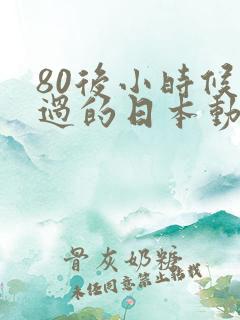 80後小時候
過的日本動
骨灰奶糖
未经同意禁止转载